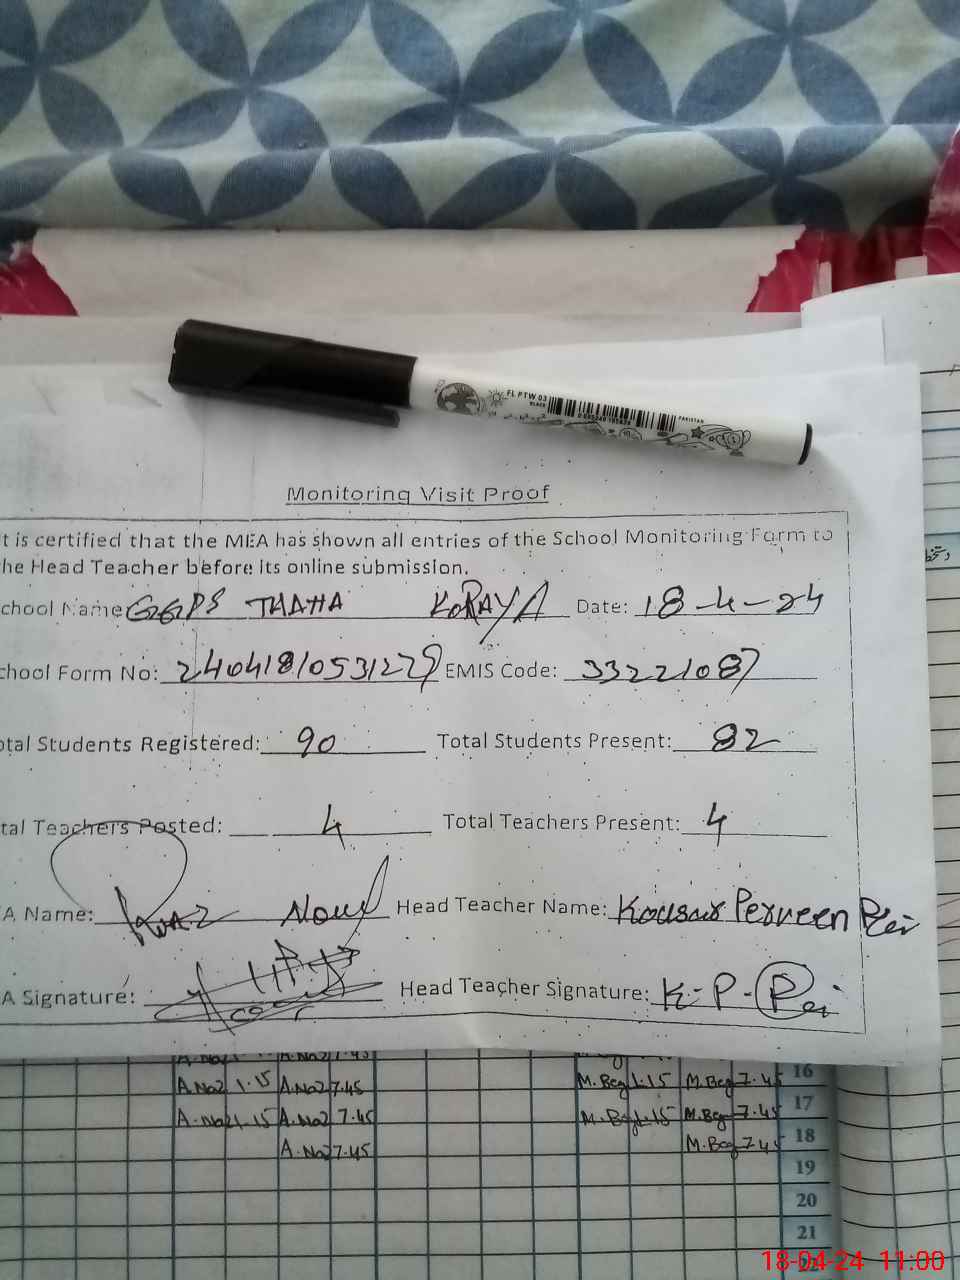 FL PTW 03
BLACK
PAKISTAN
Monitoring Visit Proof
t is certified that the MEA has shown all entries of the School Monitoring Form to
he Head Teacher before its online submission.
chool Name GGPS THAHA KORAYA Date: 18-4-24
chool Form No: 24041810531229 EMIS Code: 33221087
otal Students Registered: 90 Total Students Present: 82
tal Teachers Posted: 4 Total Teachers Present: 4
A Name: Head Teacher Name: Kousar Perveen
A Signature: Head Teacher Signature: K-P-
A.Naz 1.15 A.Naz 7.45 M.Beg 1.15 M.Beg 7.45 16
A.Naz 1.15 A.Naz 7.45 M.Beg 1.15 M.Beg 7.45 17
A.Naz 7.45 M.Beg 7.45 18
19
20
21
22
18-04-24 11:00